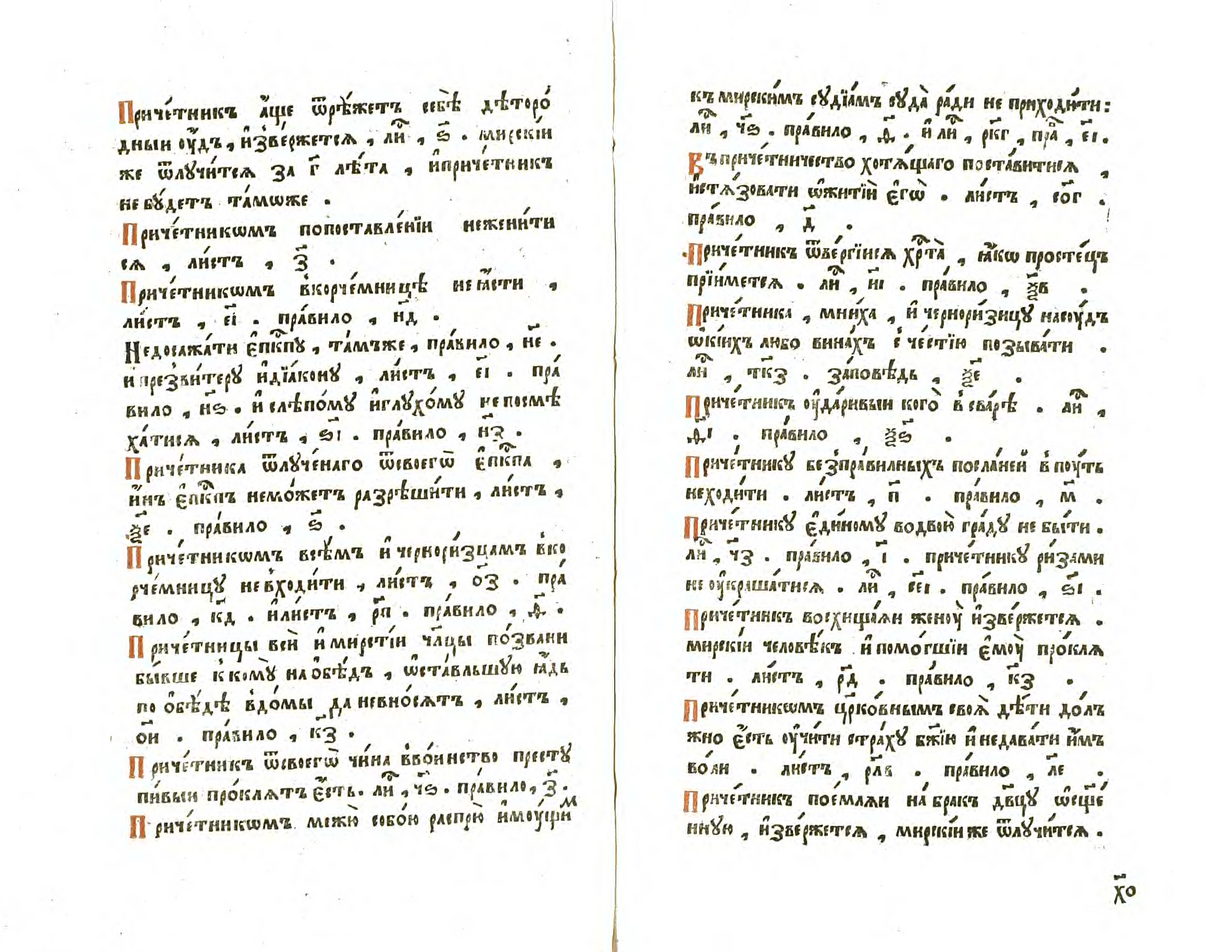 Приче́тникъ а҆́ще ѿрѣ́жетъ себѣ̀ дѣторо́
дныи ᲂу҆́дъ, и҆зве́ржетсѧ, лиⷭ҇, ѕ҃. мирскі́и
же ѿлучи́тсѧ за г҃ лѣ́та, и҆приче́тникъ
не бу́детъ та́мѡже.
Приче́тникѡмъ попоставле́нїи нежени́ти
сѧ, ли́стъ, з҃.
Приче́тникѡмъ вкорче́мницѣ не ꙗ҆́сти,
ли́стъ, є҃і. пра́вило, н҃д.
Недосажа́ти є҆пⷭ҇кпу, та́мъже, пра́вило, н҃е.
и презви́теру и҆дїа́кону, ли́стъ, є҃і. пра́
вило, н҃ѕ. и҆ слѣпо́му и҆глухо́му не посмѣ
ха́тисѧ, ли́стъ, ѕ҃і. пра́вило, н҃з.
Приче́тника ѿлуче́наго ѿсвоегѡ̀ є҆пⷭ҇кпа,
и҆́нъ є҆пⷭ҇кпъ немо́жетъ разрѣши́ти, ли́стъ,
ѯ҃е. пра́вило, ѕ҃.
Приче́тникѡмъ всѣ́мъ и҆ чернори́зцамъ вко
рче́мницу невходи́ти, ли́стъ, о҃з. пра́
вило, к҃д. и҆ли́стъ, р҃п. пра́вило, д҃.
Приче́тницы вси̑ и҆ мирсті́и чл҃цы по́звани
бы́вше к кому̀ на ѻ҆бѣ́дъ, ѡ҆ста́вльшую ꙗ҆́дь
по ѻ҆бѣ́дѣ вдо́мы да невно́сѧтъ, ли́стъ,
о҃и. пра́вило, к҃з.
Приче́тникъ ѿсвоегѡ̀ чи́на вво́инство престу
пи́выи про́клѧтъ є҆́сть. лиⷭ҇, ч҃ѕ. пра́вило, з҃.
Приче́тникѡмъ межю̀ собо́ю распрю̀ и҆мꙋ́щиⷨ
къ мирски́мъ судїа́мъ суда̀ ра́ди не приходи́ти:
лиⷭ҇, ч҃ѕ. пра́вило, д҃. и҆ лиⷭ҇, рк҃г, праⷡ҇, є҃і.
Въ приче́тничество хотѧ́щаго поста́витисѧ,
и҆стѧ́зовати ѡ҆житїи̑ є҆гѡ̀. ли́стъ, со҃г.
пра́вило, д҃.
Приче́тникъ ѿве́ргїисѧ хрⷭ҇та̀, ꙗ҆́кѡ просте́цъ
прїи́метсѧ. лиⷭ҇, и҃і. пра́вило, ѯ҃в.
Приче́тника, мни́ха, и҆ чернори́зицу насꙋ́дъ
ѡ҆ки́хъ любо вина́хъ с че́стїю позыва́ти.
лиⷭ҇, тк҃з. за́повѣдь, ѯ҃е.
Приче́тникъ ᲂу҆да́ривыи кого̀ в сва́рѣ. лиⷭ҇,
д҃і. пра́вило, ѯ҃ѕ.
Приче́тнику без̾пра́вилныхъ посла́нїи в пꙋ́ть
неходи́ти. ли́стъ, п҃. пра́вило, м҃.
Приче́тнику є҆ди́ному водвою̀ гра́ду не бы́ти.
лиⷭ҇, ч҃з. пра́вило, і҃. приче́тнику ри́зами
не ᲂу҆краша́тисѧ. лиⷭ҇, се҃і. пра́вило, ѕ҃і.
Приче́тникъ восхища́ѧи женꙋ̀ и҆зве́ржетсѧ.
мирскі́и человѣ́къ и҆ помо́гшїи є҆мꙋ̀ про́клѧ
ти. ли́стъ, р҃д. пра́вило, к҃з.
Приче́тникѡмъ цр҃ко́внымъ своѧ̀ дѣ́ти до́л
жно є҆́сть ᲂу҆чи́ти стра́ху бж҃їю и҆ недава́ти и҆́мъ
во́ли. ли́стъ, рл҃в. пра́вило, л҃е.
Приче́тникъ пое́млѧи на́ брак дв҃цу ѡ҆сще́
нную, и҆зве́ржетсѧ, мирскі́и же ѿлучи́тсѧ.
х҃о